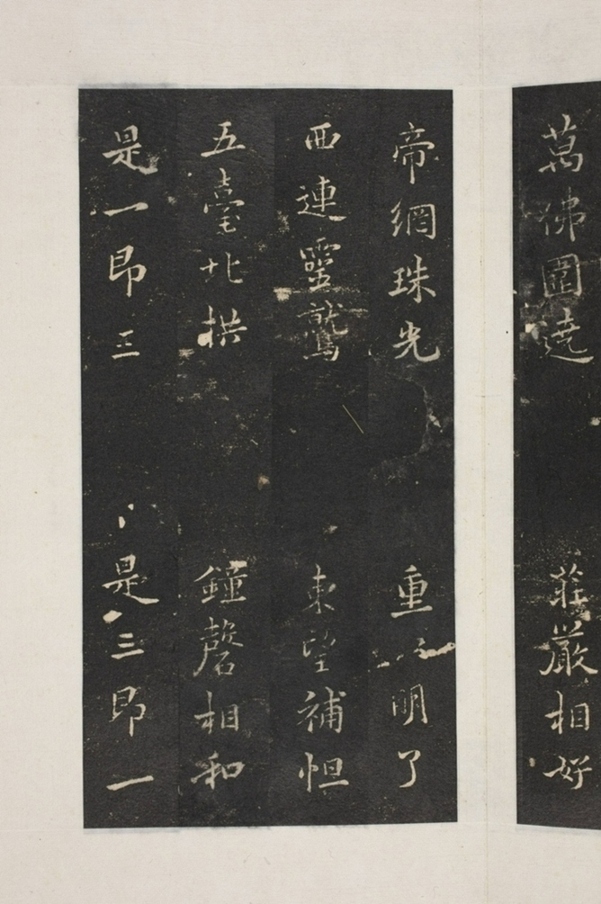 萬佛圍遶 莊嚴相好
帝網珠光 重々明了
西連靈鷲 東望補怛
五臺北拱 鐘磬相和
是一即三 是三即一